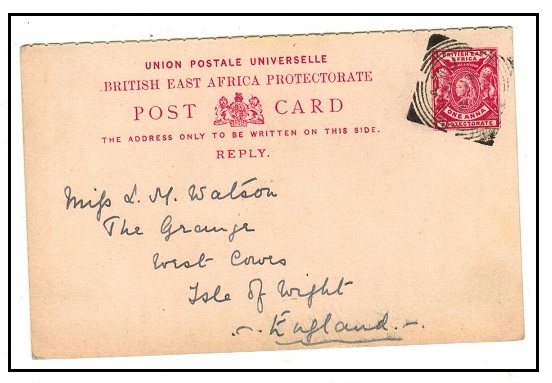 UNION POSTALE UNIVERSELLE
BRITISH EAST AFRICA PROTECTORATE
POST CARD
THE ADDRESS ONLY TO BE WRITTEN ON THIS SIDE.
REPLY.
BRITISH EAST
AFRICA
ONE ANNA
PROTECTORATE
Miss L. M. Watson
The Grange
West Cowes
Isle of Wight
England